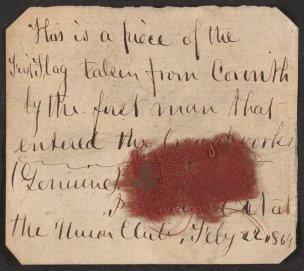 This is a piece of the
Flag taken from Corinth
by the first man that
entered the breastworks
(Genuine)
at
the Union Club, Feby 22, 186